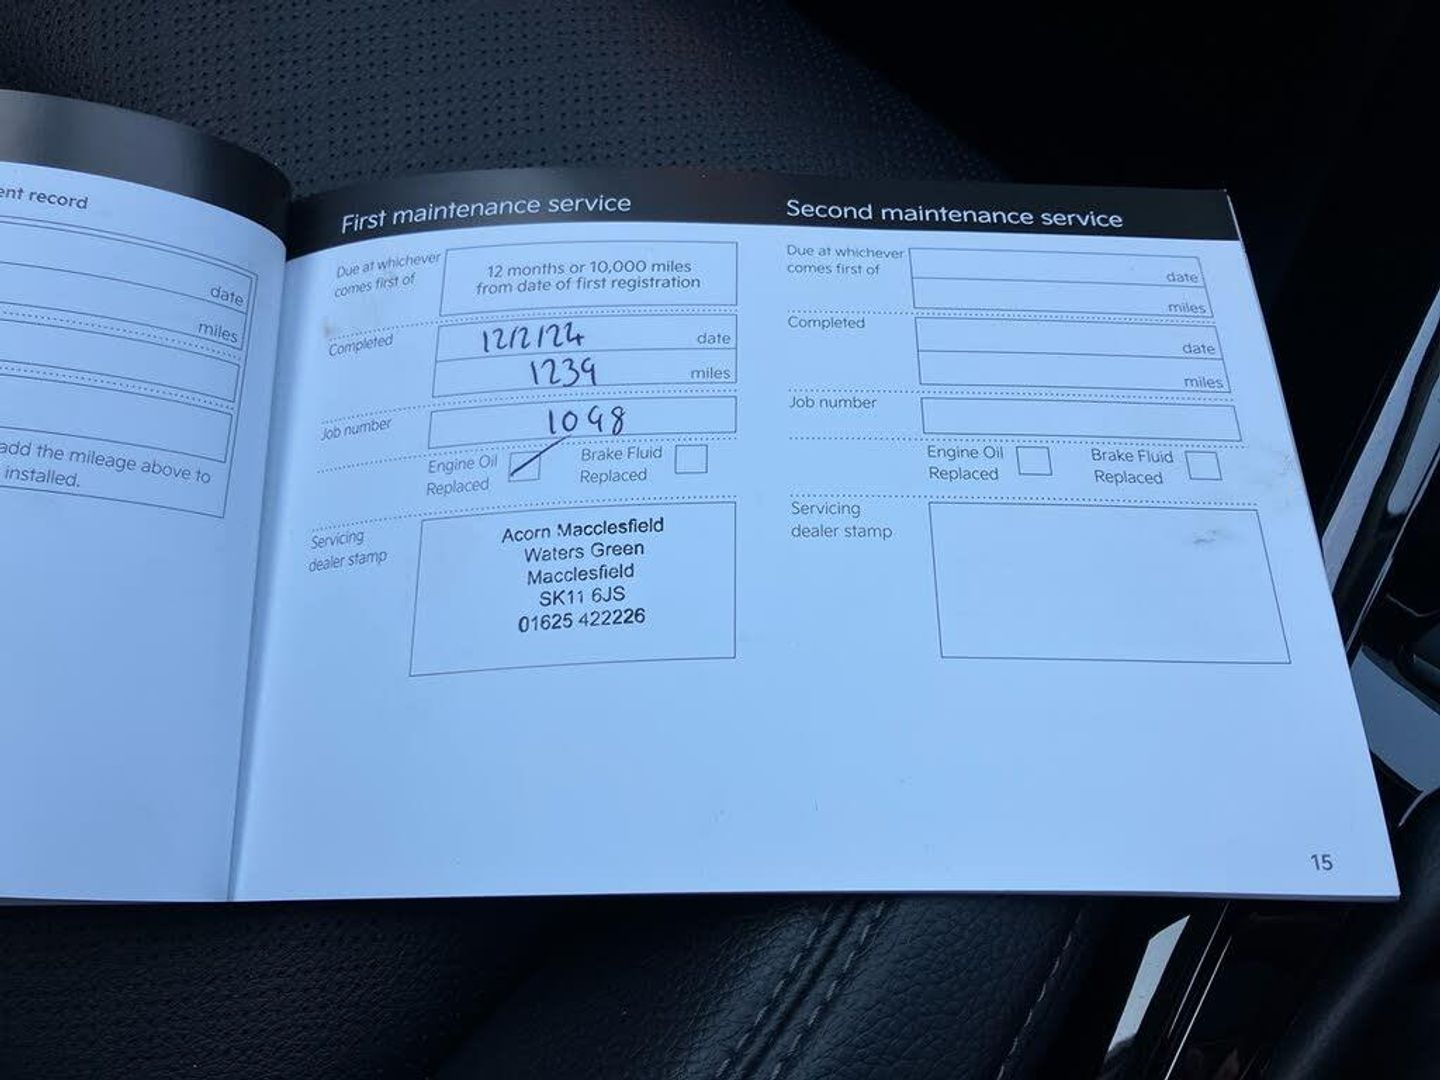 ent record
date
miles
add the mileage above to
installed.
First maintenance service
Due at whichever
comes first of
12 months or 10,000 miles
from date of first registration
Completed
12/2/24 date
1239 miles
Job number
1098
Engine Oil
Replaced
Brake Fluid
Replaced
Servicing
dealer stamp
Acorn Macclesfield
Waters Green
Macclesfield
SK11 6JS
01625 422226
Second maintenance service
Due at whichever
comes first of
date
miles
Completed
date
miles
Job number
Engine Oil
Replaced
Brake Fluid
Replaced
Servicing
dealer stamp
15